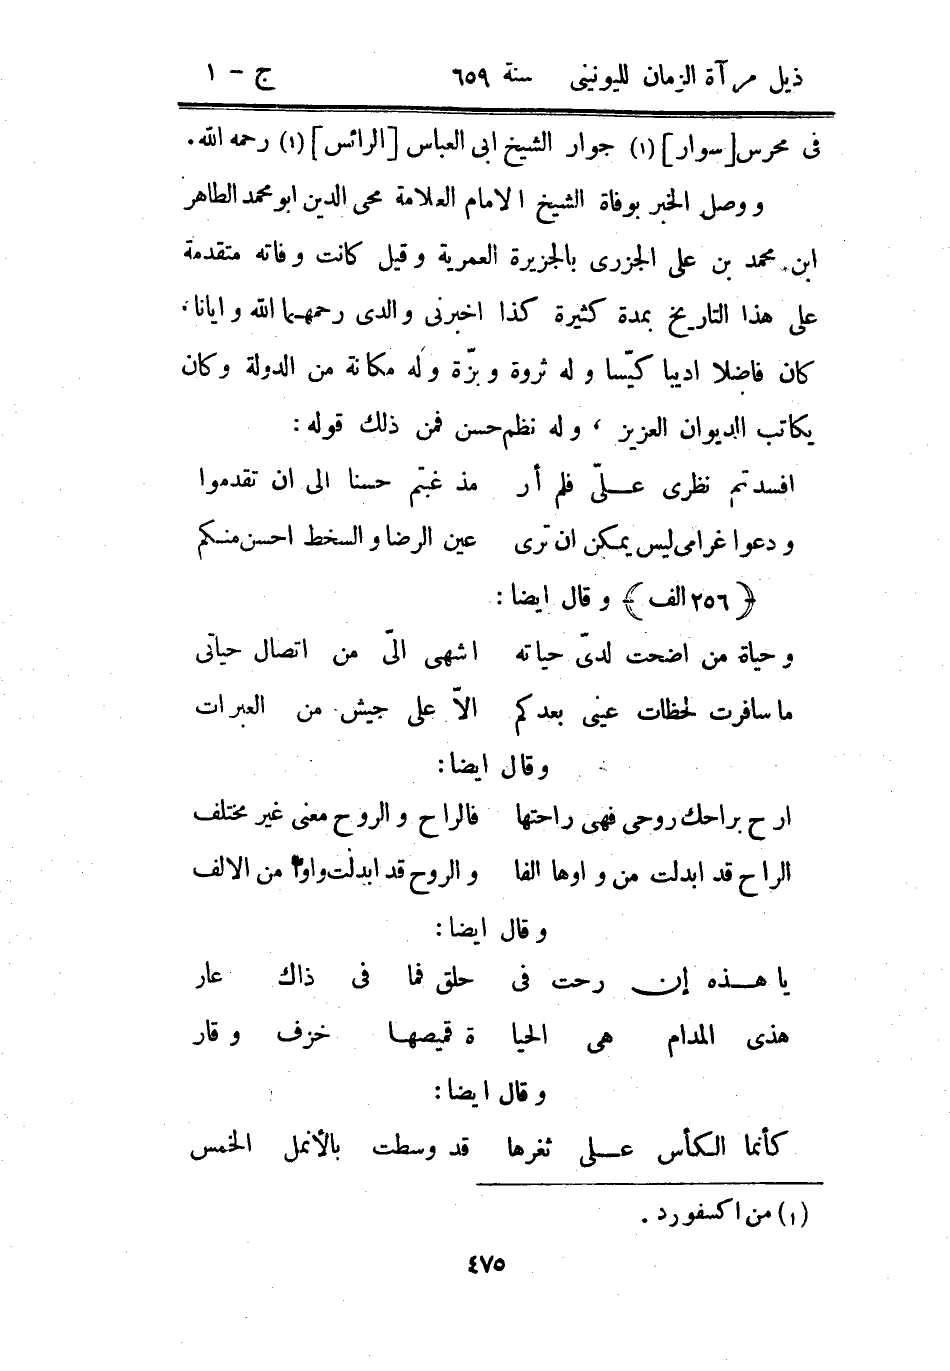 ذيل مرآة الزمان لليونينى سنة ٦٥٩ ج - ١
فى محرس[سوار](١) جوار الشيخ ابى العباس [الرائس](١) رحمه الله.
و وصل الخبر بوفاة الشيخ الامام العلامة محى الدين ابو محمد الطاهر
ابن محمد بن على الجزرى بالجزيرة العمرية و قيل كانت و فاته متقدمة
على هذا التاريخ بمدة كثيرة كذا اخبرنى والدى رحمهما الله و ايانا،
كان فاضلا اديبا كيّسا و له ثروة و بزّة و له مكانة من الدولة وكان
يكاتب الديوان العزيز ، و له نظم حسن فمن ذلك قوله:
افسدتم نظرى علىّ فلم أر مذ غبتم حسنا الى ان تقدموا
و دعوا غرامى ليس يمكن ان ترى عين الرضا و السخط احسن منكم
﴿٢٥٦ الف﴾ و قال ايضا:
و حياة من اضحت لدىّ حياته اشهى الىّ من اتصال حياتى
ما سافرت لحظات عينى بعدكم الاّ على جيش من العبرات
و قال ايضا:
ارح براحك روحى فهى راحتها فالراح و الروح معنى غير مختلف
الراح قد ابدلت من و اوها الفا و الروح قد ابدلت واوا من الالف
و قال ايضا:
يا هذه إن رحت فى خلق فما فى ذاك عار
هذى المدام هى الحيا ة قميصها خزف و قار
و قال ايضا:
كأنما الكأس على ثغرها قد وسطت بالأنمل الخمس
(١) من اكسفورد .
٤٧٥